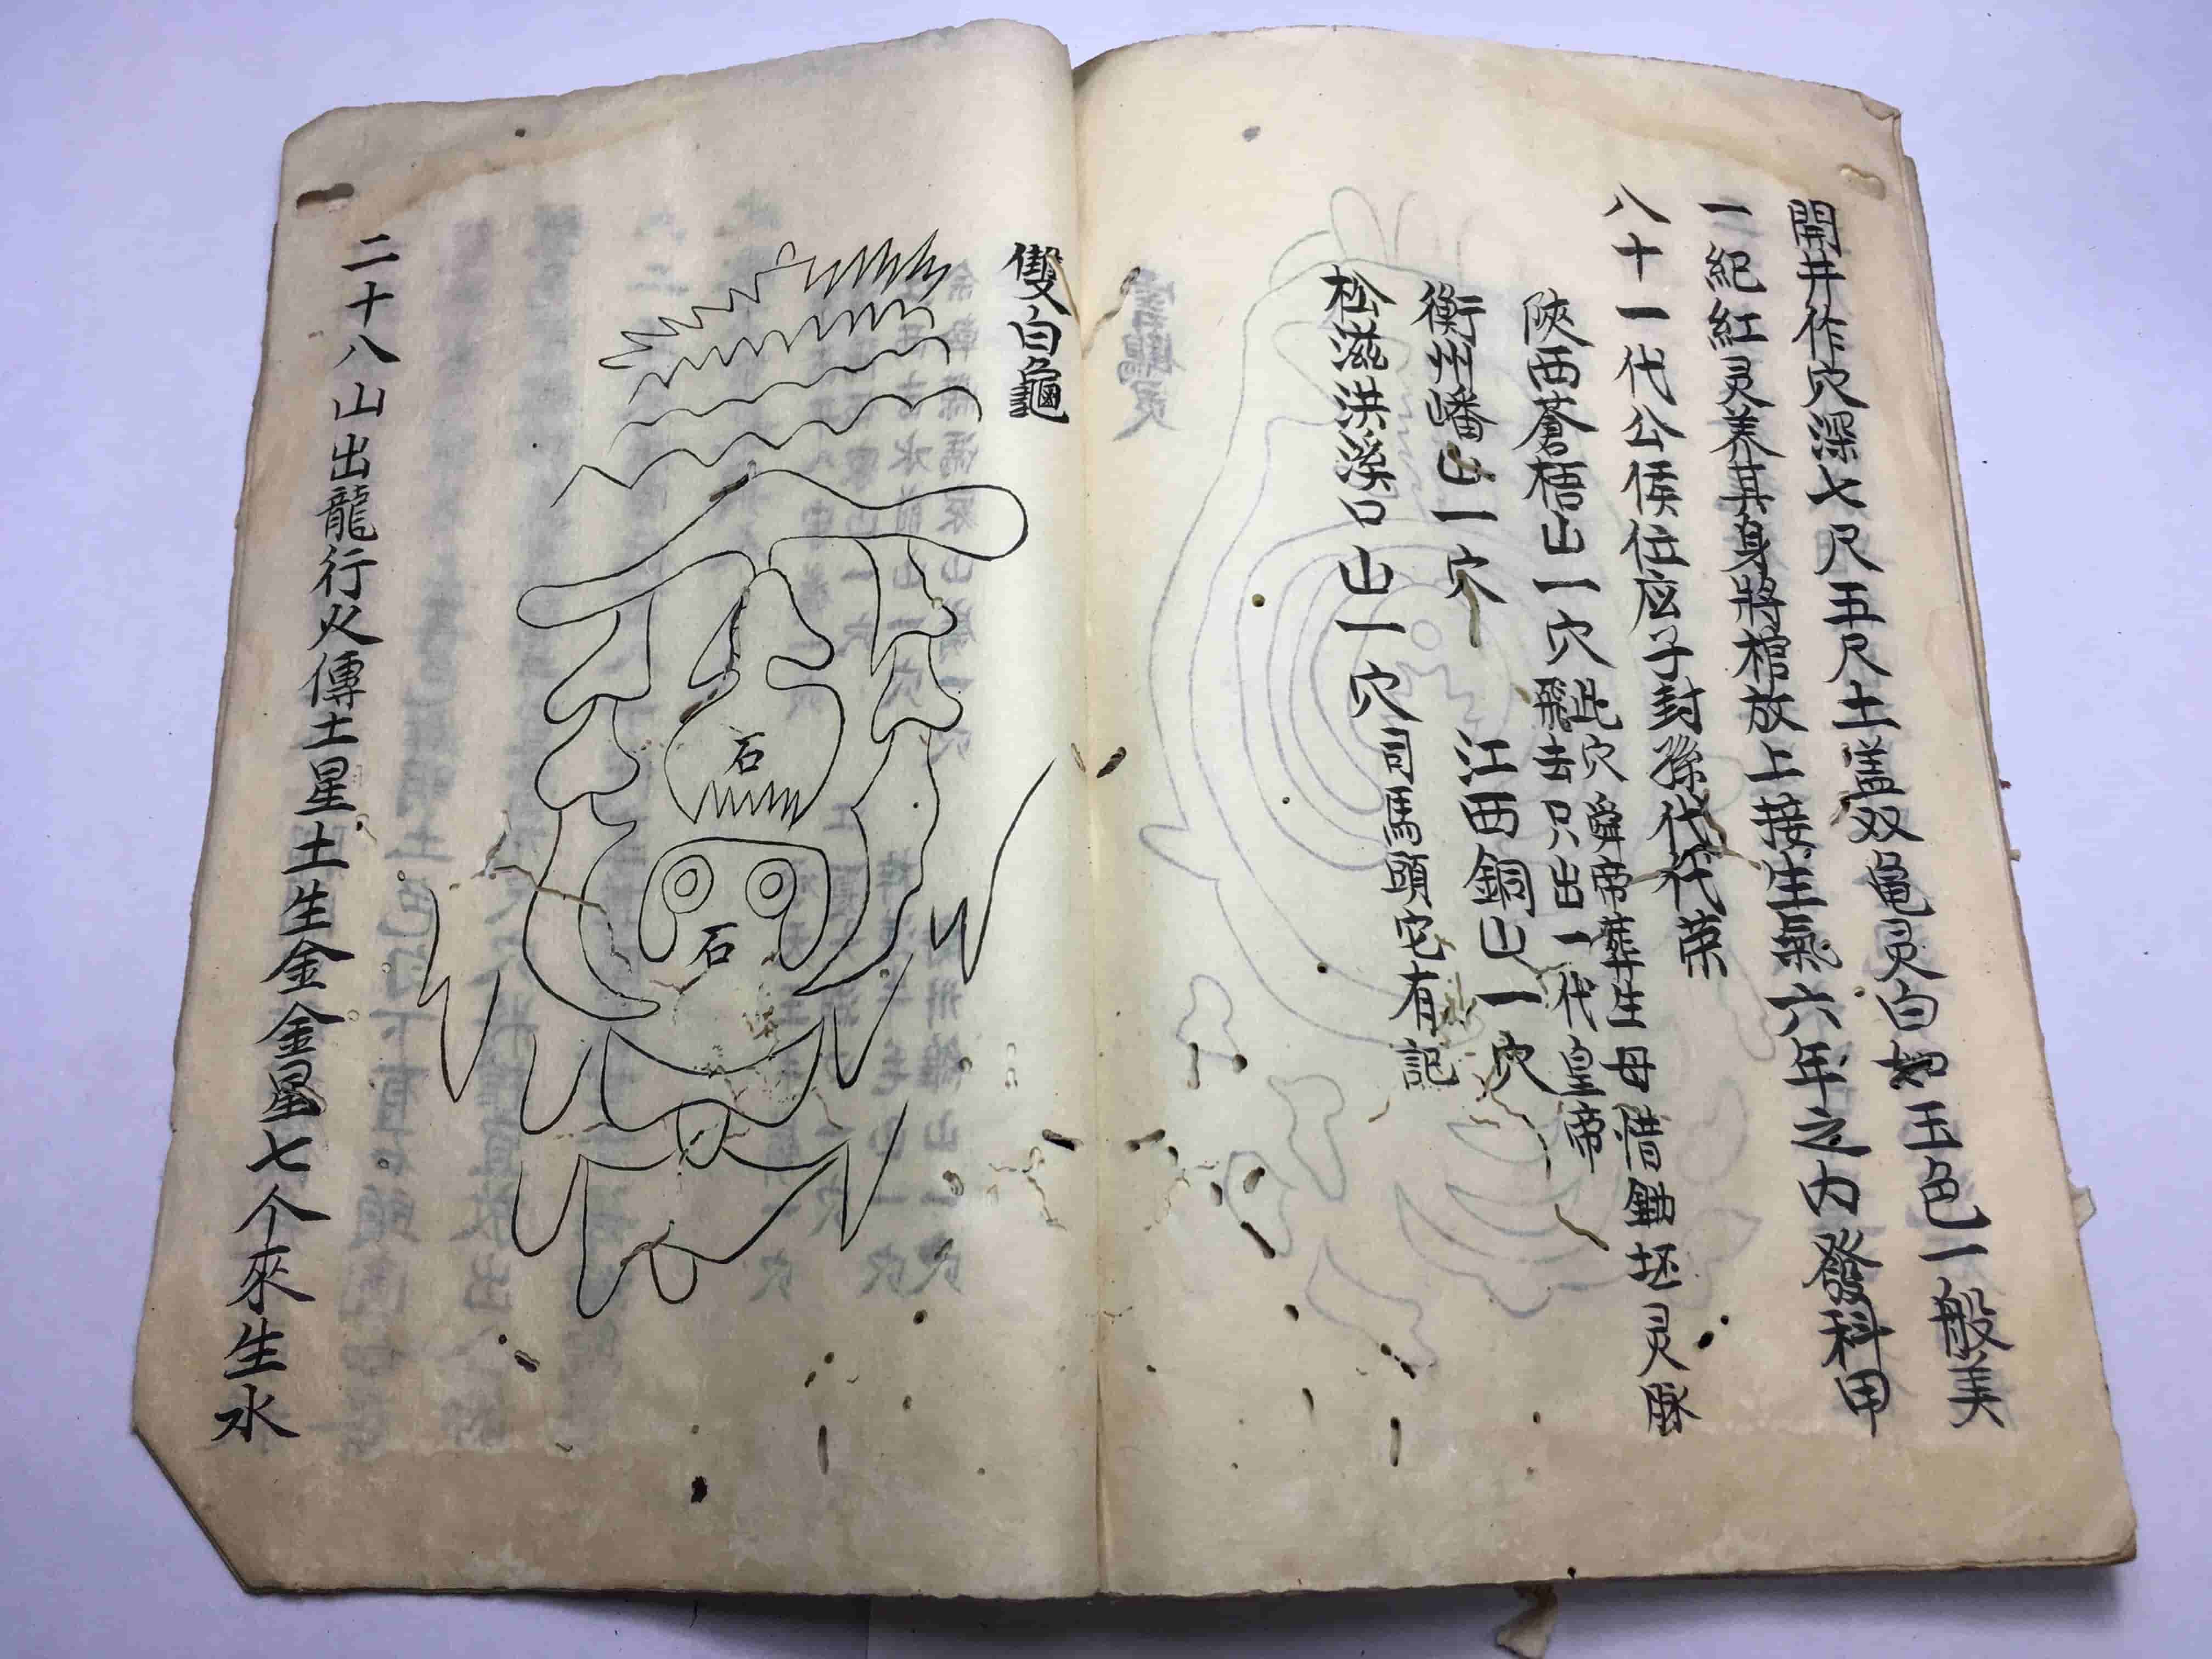 開井作穴深七尺五尺土盖双龟灵白如玉色一般美
二紀紅灵养其身將棺放上接生氣六年之内發科甲
八十一代公侯位应子封孫代代荣
陝西蒼梧山一穴此穴舜帝葬生母惜鋤坯灵脉
飛去只出一代皇帝
衡州皤山一穴 江西銅山一穴
松滋洪溪口山一穴司馬頭屯有記
雙白龜
石
石
二十八山出龍行火傳土星土生金金星七个來生水